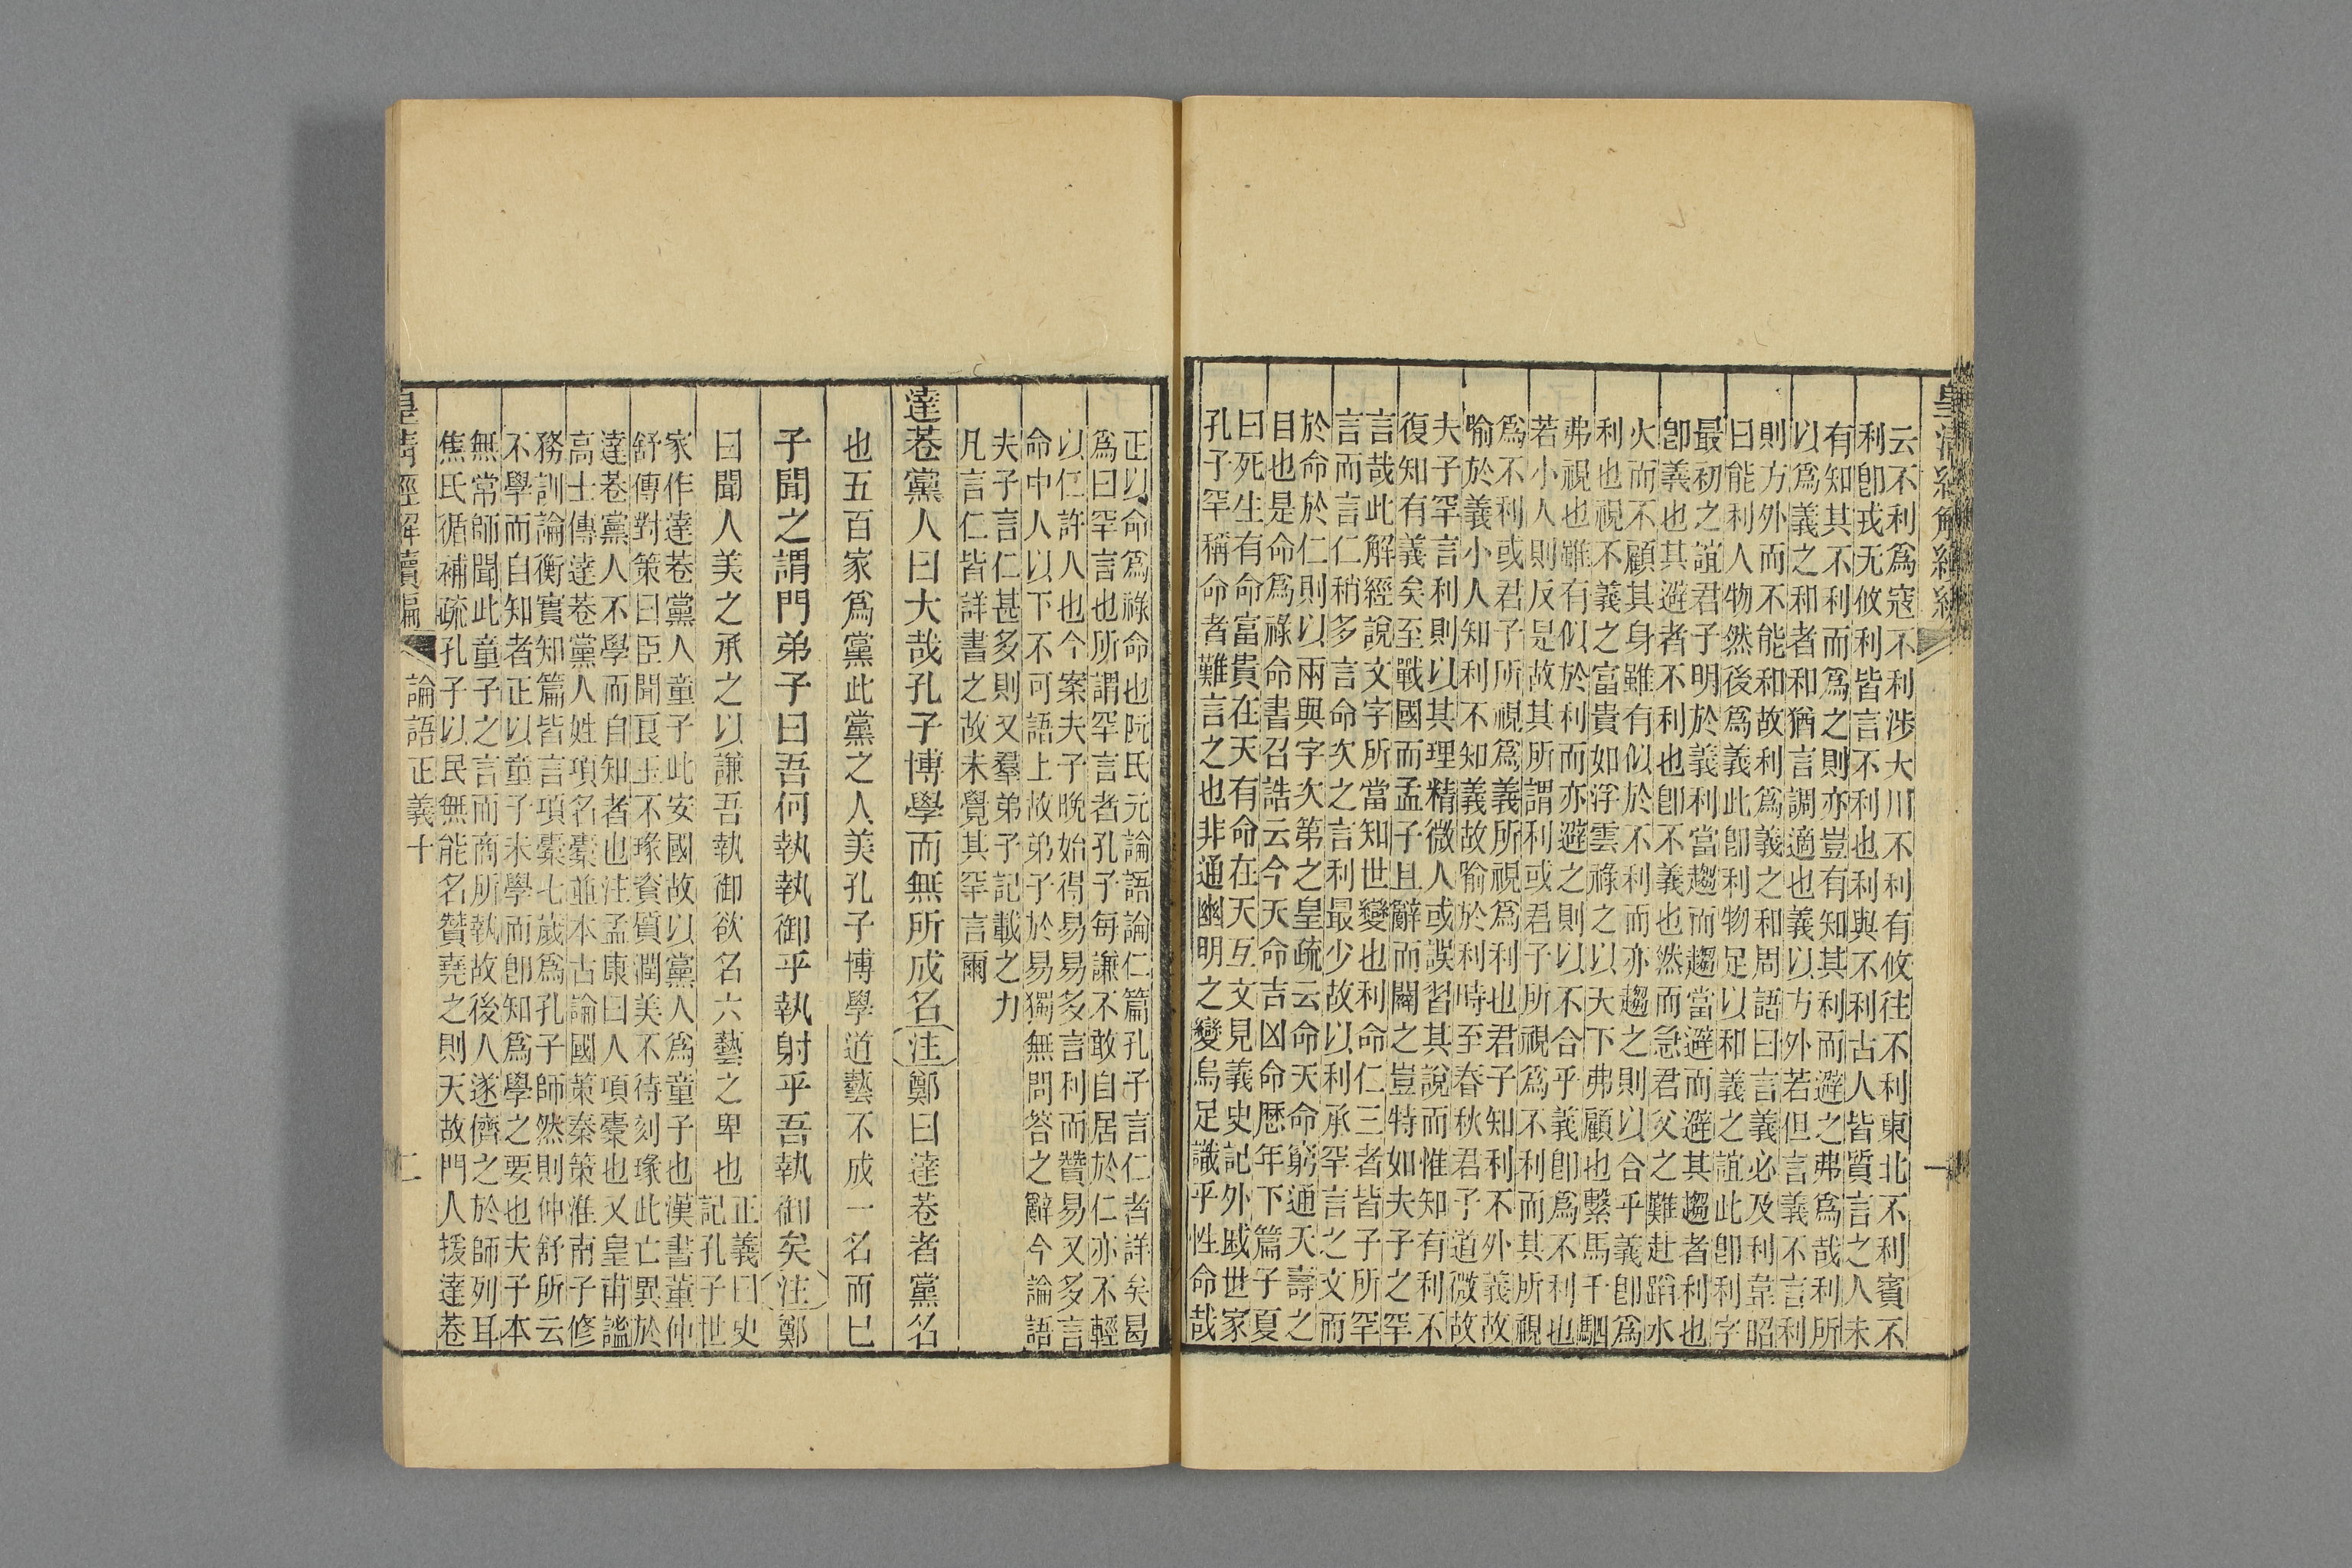 皇清經解續編
一
云不利爲寇不利涉大川不利有攸往不利東北不利賓不
利卽戎无攸利皆言不利也利與不利古人皆質言之人未
有知其不利而爲之則亦豈有知其利而避之弗爲哉利所
以爲義之和者和猶言調適也義以方外若但言義不言利
則方外而不能和故利爲義之和周語曰言義必及利韋昭
曰能利人物然後爲義此卽利物足以和義之誼此卽利字
最初之誼君子明於義利當趨而趨當避而避其趨者利也
卽義也其避者不利也卽不義也然而急君父之難赴蹈水
火而不顧其身雖有似於不利而亦趨之則以合乎義卽爲
利也視不義之富貴如浮雲祿之以天下弗顧也繫馬千駟
弗視也雖有似於利而亦避之則以不合乎義卽爲不利也
若小人則反是故其所謂利或君子所視爲不利而其所視
爲不利或君子所視爲義所視爲利也君子知利不外義故
喻於義小人知利不知義故喻於利時至春秋君子道微故
夫子罕言利則以其理精微人或誤習其說而惟知有利不
復知有義矣至戰國而孟子且辭而闢之豈特如夫子之罕
言哉此解經說文字所當知世變也利命仁三者皆子所罕
言而言仁稍多言命次之言利最少故以利承罕言之文而
於命於仁則以兩與字次第之皇疏云命天命窮通夭壽之
目也是命爲祿命書召誥云今天命吉凶命歷年下篇子夏
曰死生有命富貴在天有命在天互文見義史記外戚世家
孔子罕稱命者難言之也非通幽明之變烏足識乎性命哉
正以命爲祿命也阮氏元論語論仁篇孔子言仁者詳矣曷
爲曰罕言也所謂罕言者孔子每謙不敢自居於仁亦不輕
以仁許人也今案夫子晚始得易易多言利而贊易又多言
命中人以下不可語上故弟子於易獨無問答之辭今論語
夫子言仁甚多則又羣弟子記載之力
凡言仁皆詳書之故未覺其罕言爾
達巷黨人曰大哉孔子博學而無所成名注鄭曰達巷者黨名
也五百家爲黨此黨之人美孔子博學道藝不成一名而已
子聞之謂門弟子曰吾何執執御乎執射乎吾執御矣注鄭
曰聞人美之承之以謙吾執御欲名六藝之卑也正義曰史
記孔子世
家作達巷黨人童子此安國故以黨人爲童子也漢書董仲
舒傳對策曰臣聞良玉不瑑資質潤美不待刻瑑此亡異於
達巷黨人不學而自知者也注孟康曰人項橐也又皇甫謐
高士傳達巷黨人姓項名橐並本古論國策秦策淮南子修
務訓論衡實知篇皆言項橐七歲爲孔子師然則仲舒所云
不學而自知者正以童子未學而卽知爲學之要也夫子本
無常師聞此童子之言而商所執故後人遂儕之於師列耳
焦氏循補疏孔子以民無能名贊堯之則天故門人援達巷
皇清經解續編
論語正義十
二